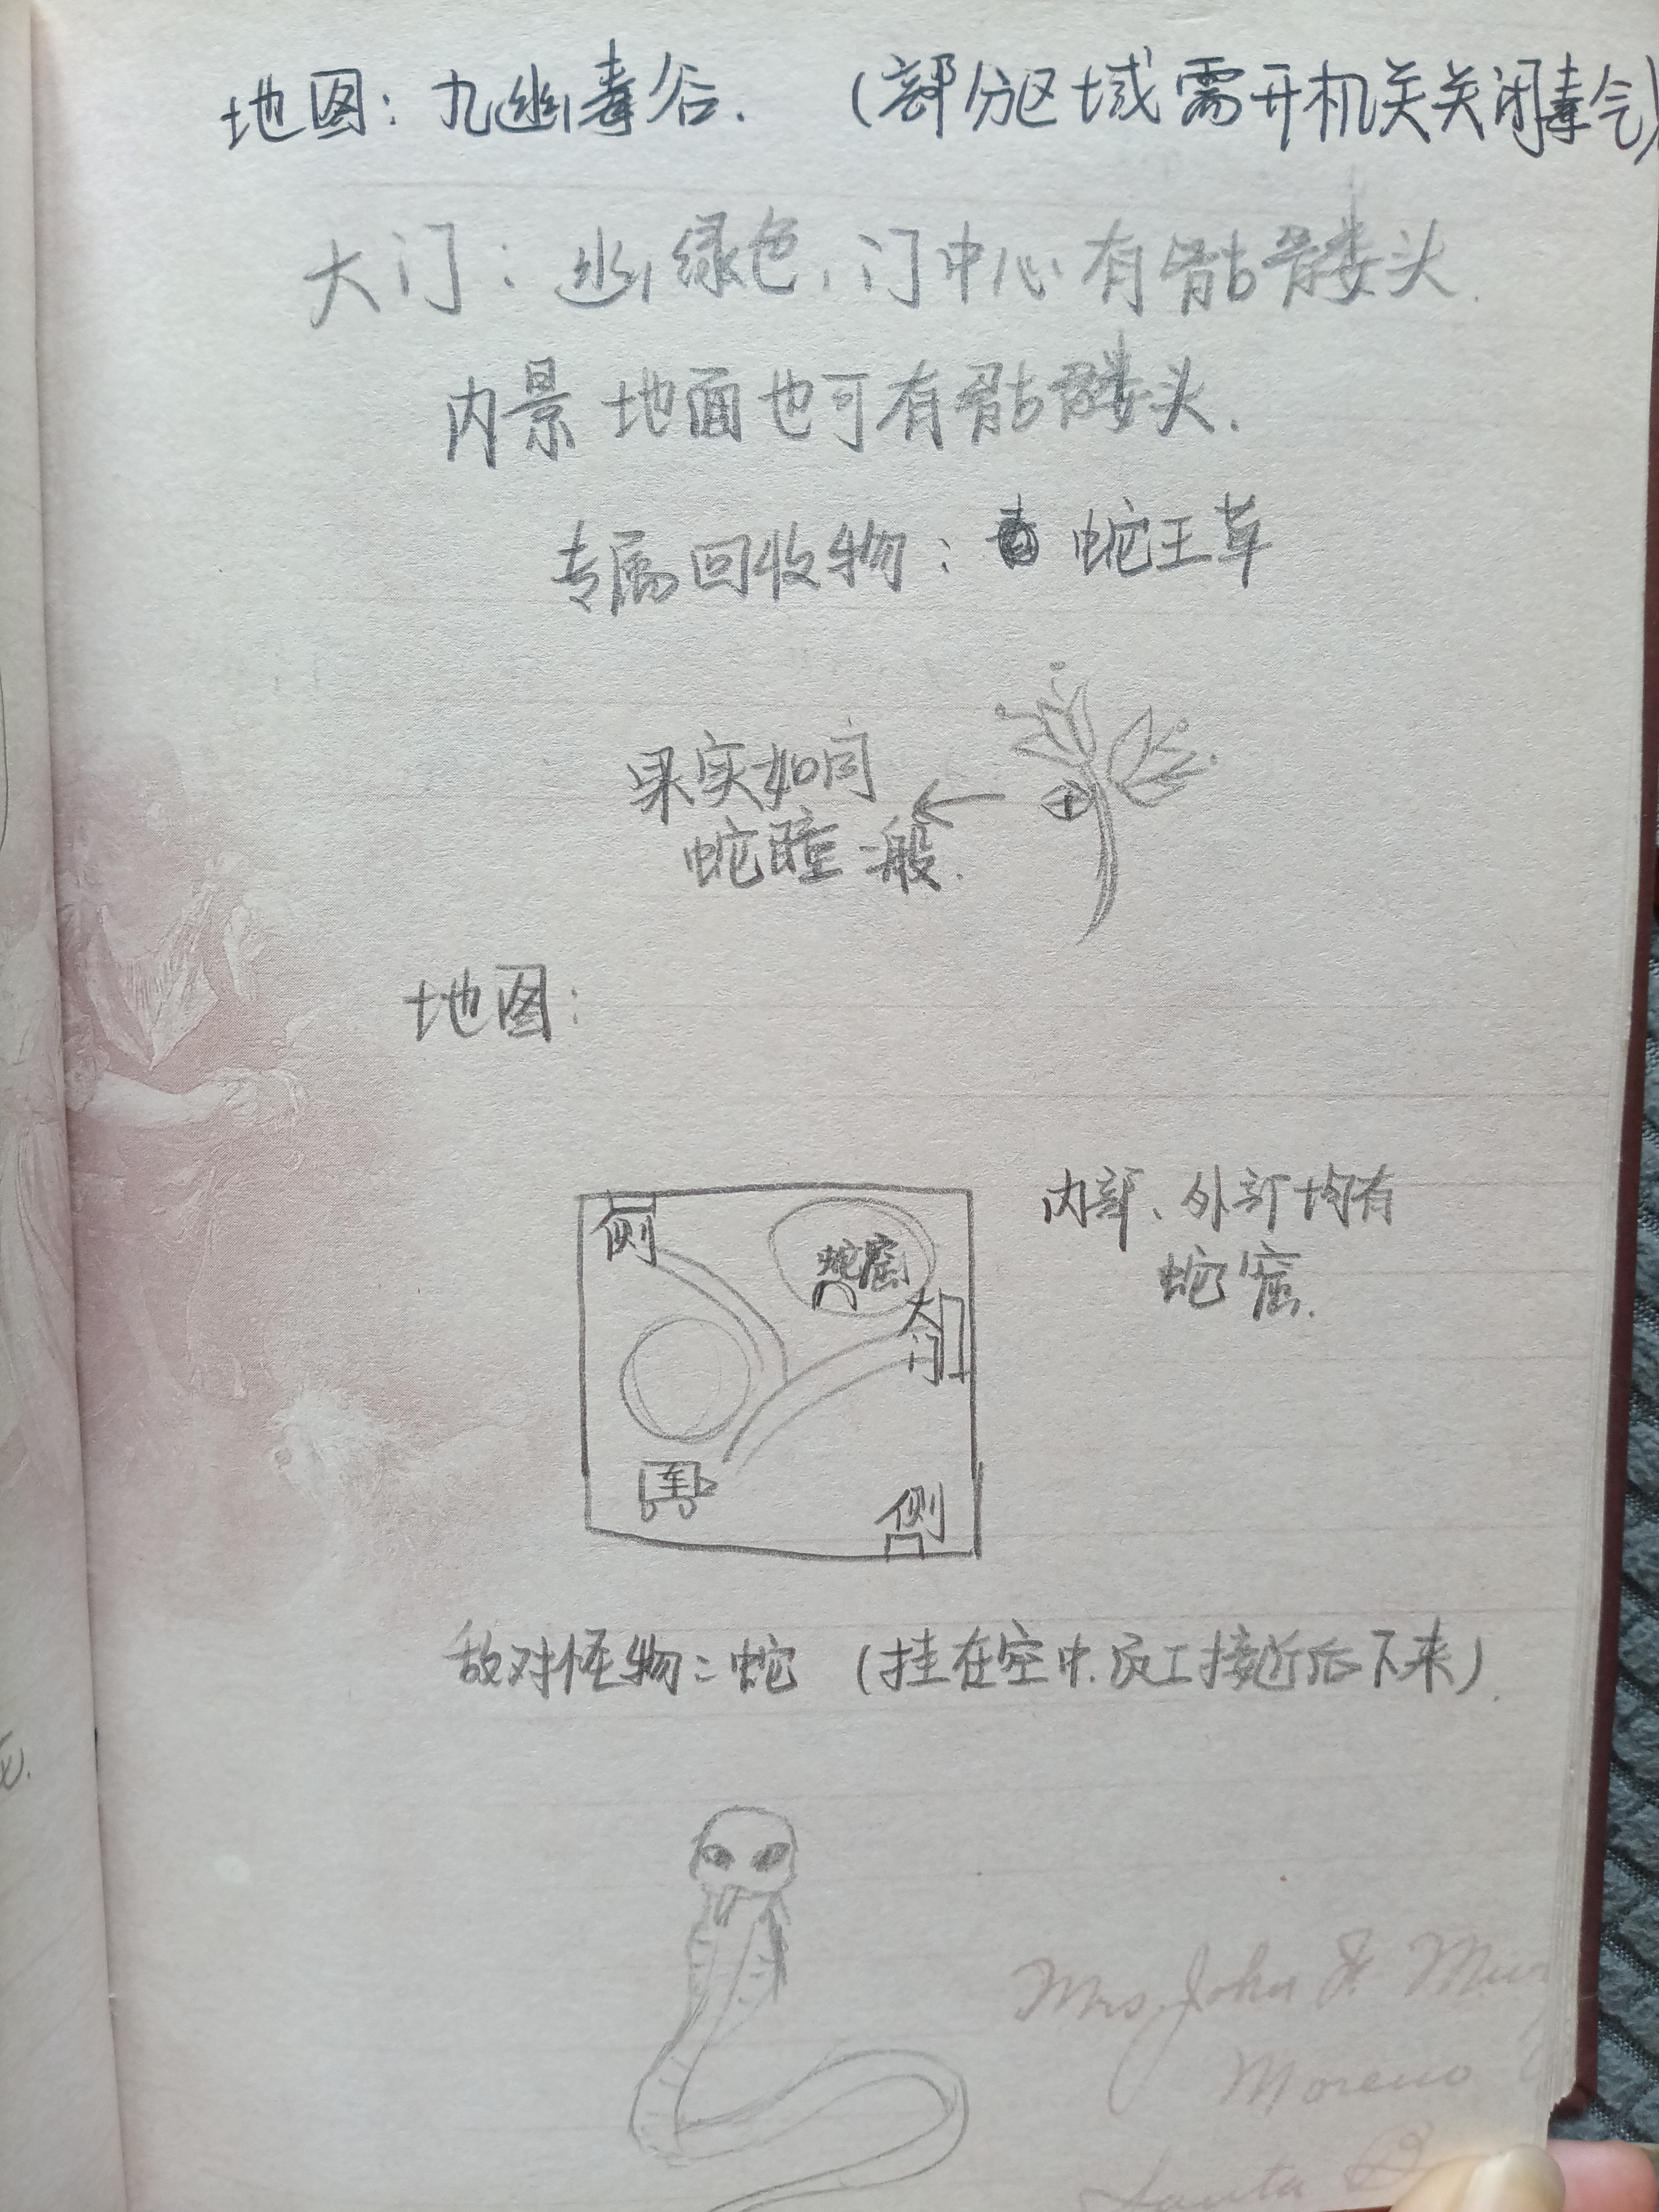 地图：九幽毒谷．（部分区域需开机关关闭毒气）
大门：幽绿色，门中心有骷髅头．
内景地面也可有骷髅头．
专属回收物：蛇王草
果实如同
蛇瞳一般．
地图：
侧
蛇窟
大门
车
侧
内部、外部均有
蛇窟．
敌对怪物：蛇（挂在空中．员工接近后下来）．
Mrs. John F.
Moreno
Santa